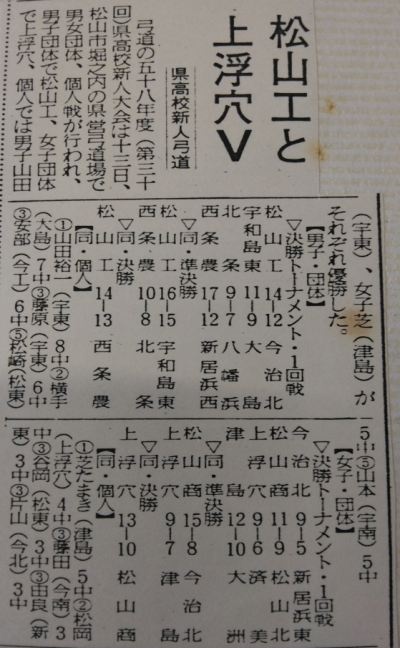 松山工と
上浮穴Ｖ
県高校新人弓道
弓道の五十八年度（第三十
回）県高校新人大会は十三日、
松山市堀之内の県営弓道場で
男女団体、個人戦が行われ、
男子団体で松山工、女子団体
で上浮穴、個人では男子山田
（宇東）、女子芝（津島）が
それぞれ優勝した。
【男子・団体】
▽決勝トーナメント・１回戦
松山工 14―12 今治北
宇和島東 11―9 大島
北条 9―7 八幡浜
西条農 17―12 新居浜西
▽同・準決勝
松山工 16―15 宇和島東
西条農 10―8 北条
▽同・決勝
松山工 14―13 西条農
【同・個人】
①山田裕一（宇東）８中②横手
（大島）７中③藤原（宇東）６中
③安部（今工）６中⑤松崎（松東）
５中⑤山本（宇南）５中
【女子・団体】
▽決勝トーナメント・１回戦
今治北 9―5 新居浜東
松山商 11―9 松山北
上浮穴 9―6 済美
津島 12―10 大洲
▽同・準決勝
松山商 15―8 今治北
上浮穴 9―7 津島
▽同・決勝
上浮穴 13―10 松山商
【同・個人】
①芝たまき（津島）５中②松岡
（上浮穴）４中③藤田（今南）３
中③谷岡（松東）３中③由良（新
東）３中③片山（今北）３中